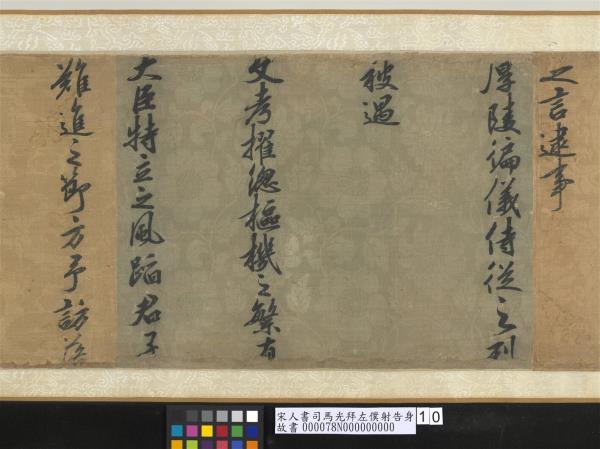 之言逮事
厚陵徧儀侍從之列
被遇
文考擢總樞機之繁有
大臣特立之風蹈君子
難進之節方予訪落
宋人書司馬光拜左僕射告身 10
故書 000078N000000000